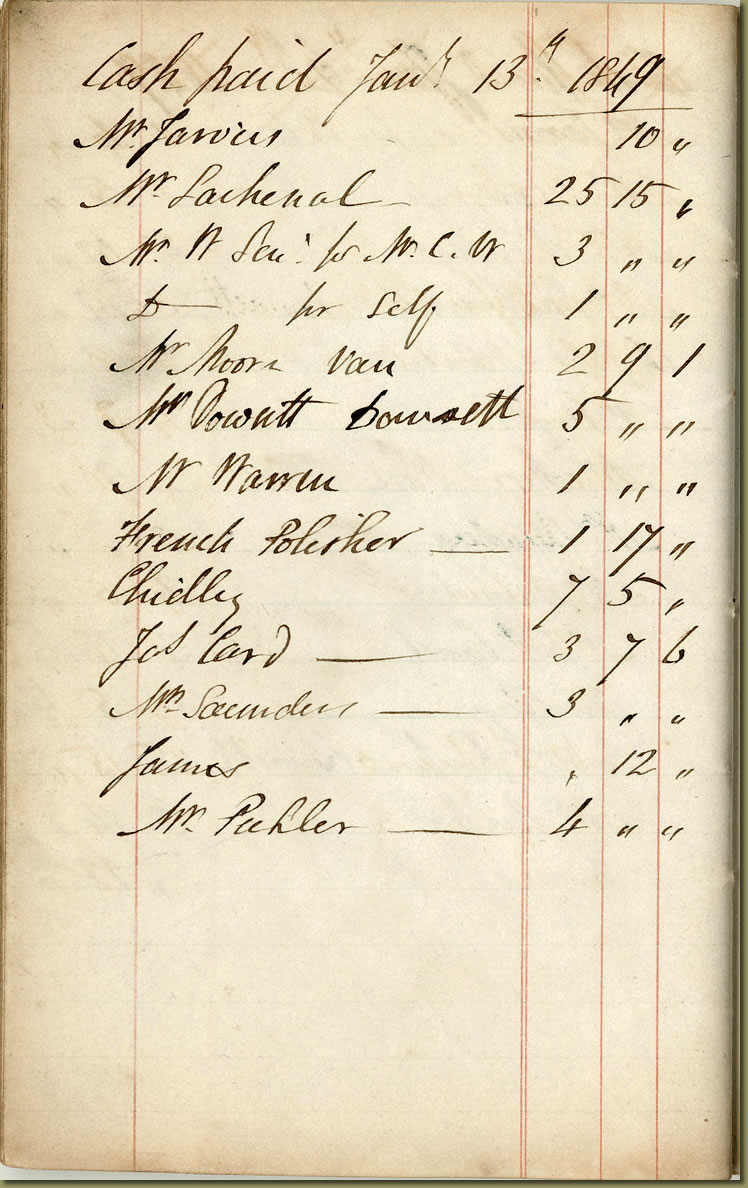 Cash paid Jany 13th 1849
Mr. Jarvis 10 "
Mr. Lachenal 25 15 "
Mr. W Senr. for Mr. C. W 3 " "
Do for Self 1 " "
Mr Moore Van 2 9 1
Mr Dowsett 5 " "
Mr Warren 1 " "
French Polisher 1 17 "
Chidley 7 5 "
Jos Card 3 7 6
Mrs Saunders 3 " "
James " 12 "
Mr. Pahler 4 " "